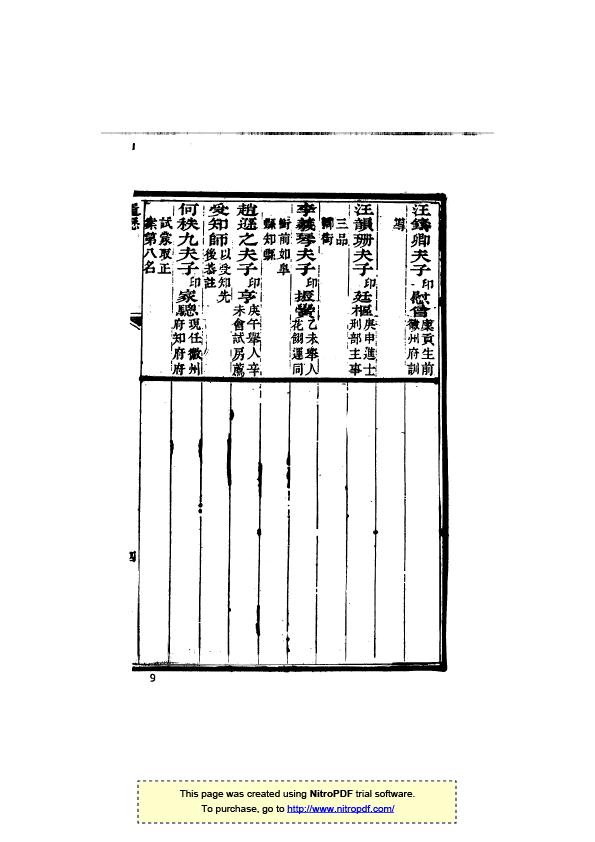 汪鑄卿夫子印慰曾廩貢生前徽州府訓
導
汪韻珊夫子印廷樞庚申進士刑部主事
三品卿銜
李義琴夫子印乙未舉人花翎運同
銜前如皋縣知縣
趙之夫子印亨庚午舉人辛未會試房薦
受知師以受知先後恭註
何秩九夫子印家驄現任徽州府知府府
試蒙取正案第八名
四
9
This page was created using NitroPDF trial software.
To purchase, go to http://www.nitropdf.com/